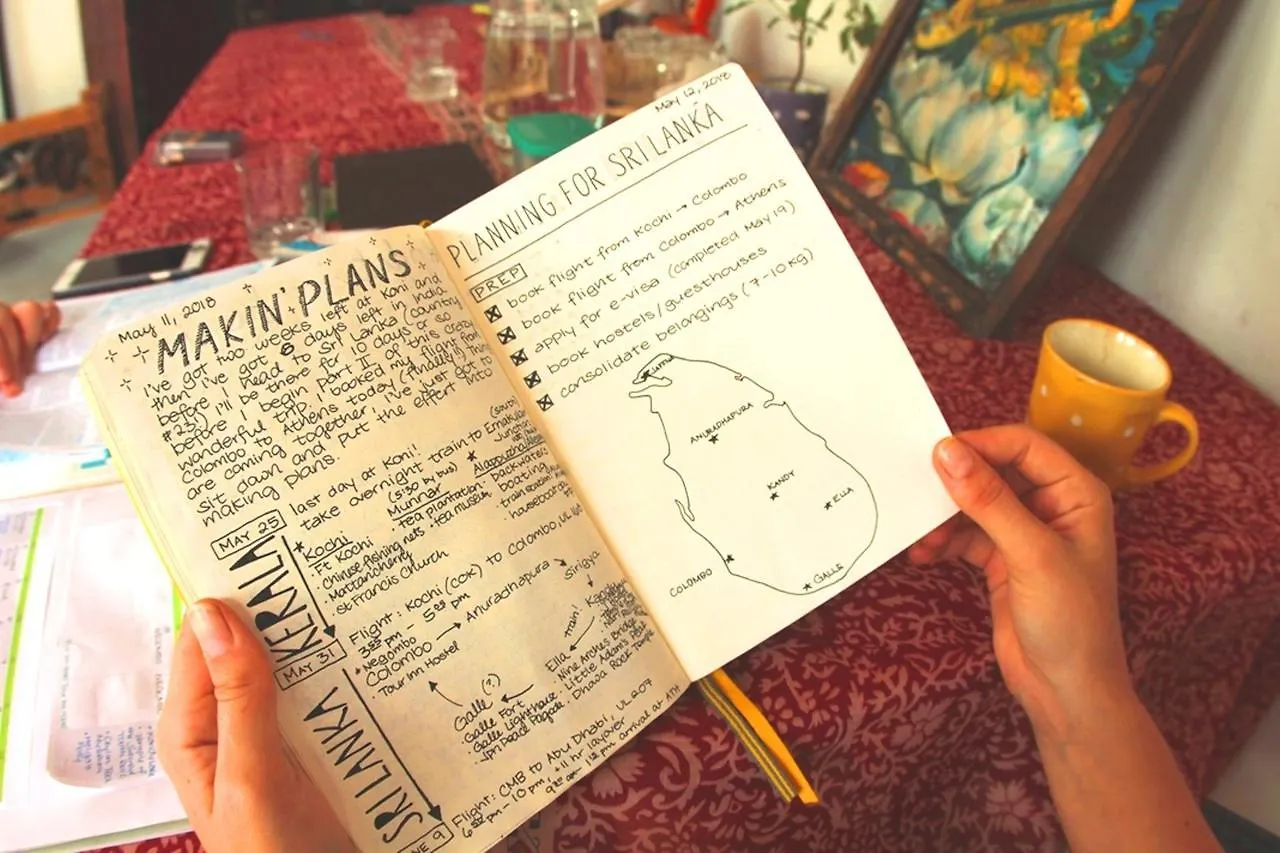 May 11, 2018
MAKIN' PLANS
I've got two weeks left at Koni and
then I've got 6 days left in India
before I head to Sri Lanka (country
#23!) I'll be there for 10 days or so
before I begin part II of this crazy
wonderful trip. I booked my flight from
Colombo to Athens today
are coming together, I've just got to
sit down and put the effort into
making plans.
MAY 25
KERALA
MAY 31
SRI LANKA
NE 9
last day at Koni!
take overnight train to Ernakulam
(5:30 by bus)
Junction
*Kochi
· Ft Kochi
· Chinese fishing nets
· Mattancherry
· St Francis Church
Munnar
· tea plantation
· tea museum
* Alappuzha
· backwaters
boating
· train station
· houseboat
Flight: Kochi (COK) to Colombo, UL 166
3:55 pm - 5:05 pm
* Negombo
Colombo → Anuradhapura → Sirigiya
Tour Inn Hostel
train!
Ella
· Nine Arches Bridge
· Little Adam's Peak
· Dhowa Rock Temple
Galle (?)
· Galle Fort
· Galle Lighthouse
· Jpn Peace Pagoda
Flight: CMB to Abu Dhabi, UL 207
6:55 pm - 10 pm, +11 hr layover
12 pm arrival at ATH
May 12, 2018
PLANNING FOR SRI LANKA
PREP
☒ book flight from Kochi → Colombo
☒ book flight from Colombo → Athens
☒ apply for e-visa (completed May 19)
☒ book hostels/guesthouses
☒ consolidate belongings (7-10 kg)
ANURADHAPURA
KANDY
ELLA
COLOMBO
GALLE